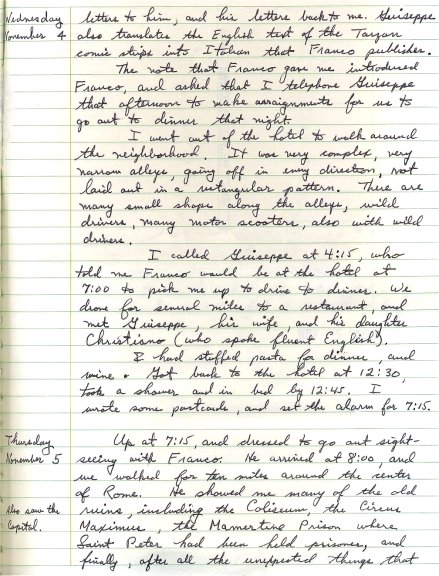 Wednesday
November 4
letters to him, and his letters back to me. Guiseppe
also translates the English text of the Tarzan
comic strips into Italian that Franco publishes.
The note that Franco gave me introduced
Franco, and asked that I telephone Guiseppe
that afternoon to make arraignments for us to
go out to dinner that night.
I went out of the hotel to walk around
the neighborhood. It was very complex, very
narrow alleys, going off in every direction, not
laid out in a rectangular pattern. There are
many small shops along the alleys, wild
drivers, many motor scooters, also with wild
drivers.
I called Guiseppe at 4:15, who
told me Franco would be at the hotel at
7:00 to pick me up to drive to dinner. We
drove for several miles to a restaurant and
met Guiseppe, his wife, and his daughter
Christiano (who spoke fluent English).
I had stuffed pasta for dinner, and
wine. Got back to the hotel at 12:30,
took a shower and in bed by 12:45. I
wrote some postcards, and set the alarm for 7:15.
Thursday
November 5
Up at 7:15, and dressed to go out sight-
seeing with Franco. He arrived at 8:00, and
we walked for ten miles around the center
of Rome. He showed me many of the old
Also saw the
Capital.
ruins, including the Coliseum, the Circus
Maximus, the Mamertine Prison where
Saint Peter had been held prisoner, and
finally, after all the unexpected things that